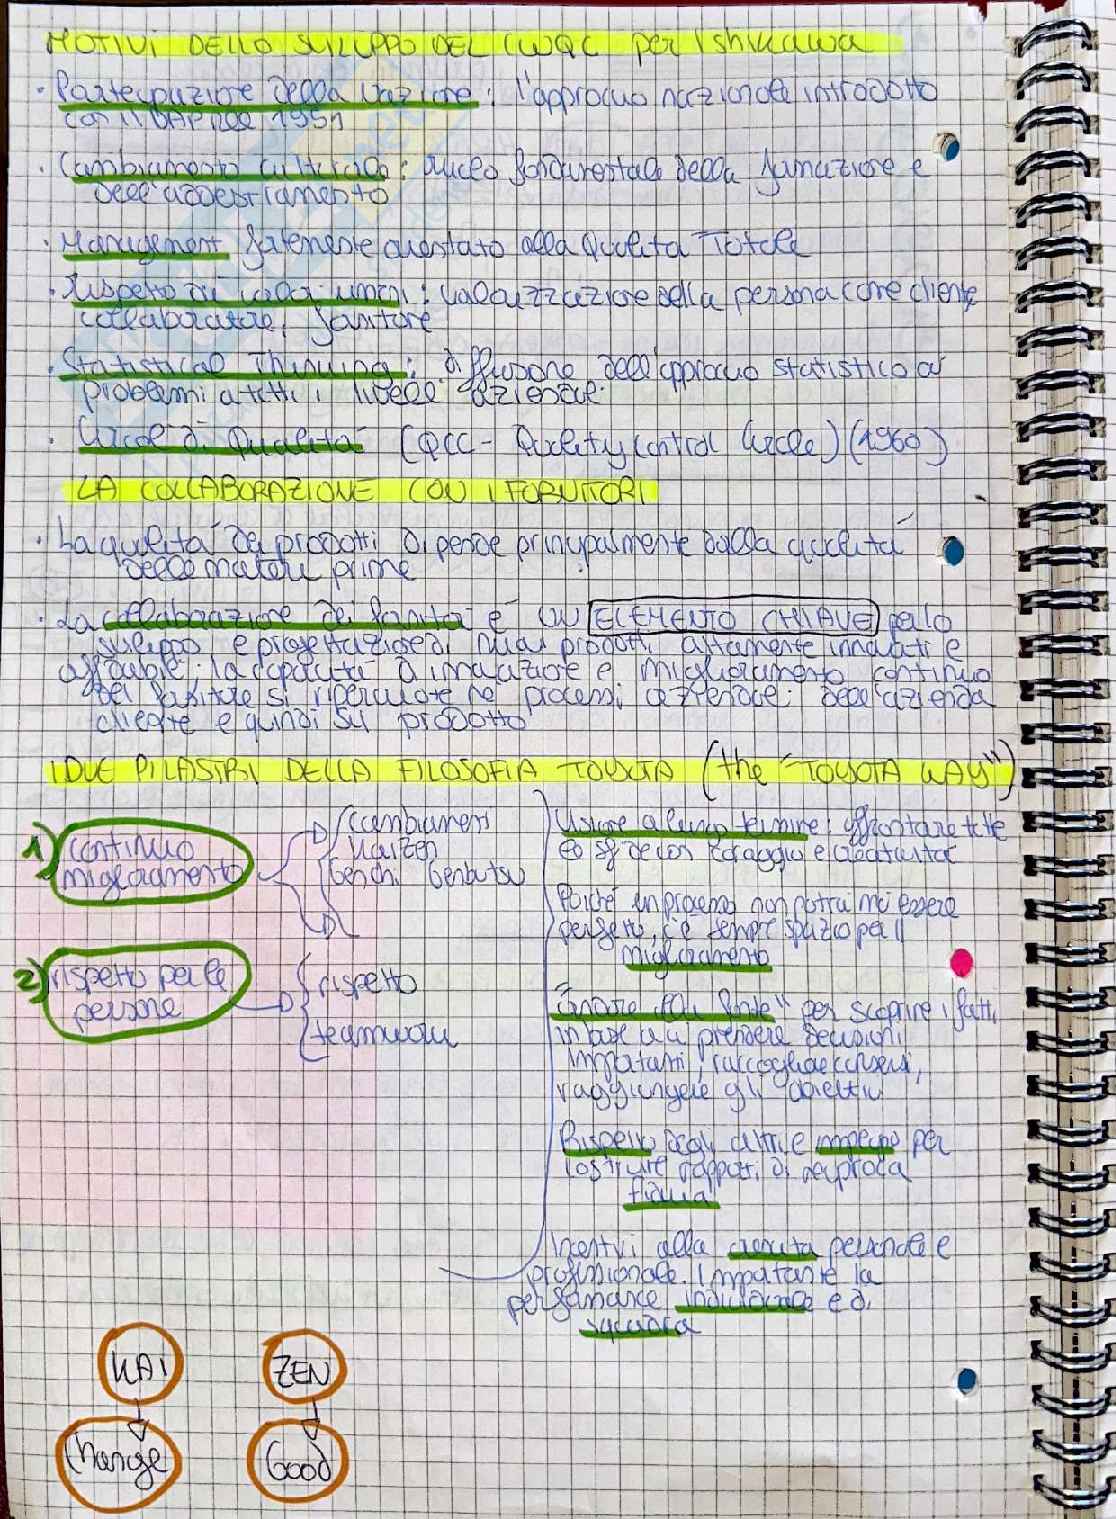 MOTIVI DELLO SVILUPPO DEL CWQC per Ishikawa
· Partecipazione della Nazione: l'approccio nazionale introdotto
con il DAP nel 1951
· Cambiamento culturale: nucleo fondamentale della formazione e
dell'addestramento
· Management fortemente orientato alla Qualità Totale
· Rispetto dei valori umani: valorizzazione della persona come cliente,
collaboratore, fornitore
· Statistical Thinking: diffusione dell'approccio statistico ai
problemi a tutti i livelli aziendali.
· Circoli di Qualità (QCC - Quality Control Circle) (1960)
LA COLLABORAZIONE CON I FORNITORI
· La qualità dei prodotti dipende principalmente dalla qualità
delle materie prime
· La collaborazione dei fornitori è un ELEMENTO CHIAVE per lo
sviluppo e progettazione di nuovi prodotti altamente innovativi e
affidabili. La capacità di innovazione e miglioramento continuo
del fornitore si ripercuote nei processi aziendali dell'azienda
cliente e quindi sul prodotto
I DUE PILASTRI DELLA FILOSOFIA TOYOTA (the "TOYOTA WAY")
1) continuo
miglioramento
Cambiamenti
Kaizen
Genchi Genbutsu
2) rispetto per le
persone
rispetto
teamwork
Visione a lungo termine: affrontare tutte
le sfide con coraggio e creatività
Poiché un processo non potrà mai essere
perfetto, c'è sempre spazio per il
miglioramento
"Andare alla fonte" per scoprire i fatti,
in base a cui prendere decisioni
importanti, raccogliere consensi,
raggiungere gli obiettivi
Rispetto degli altri e impegno per
costruire rapporti di reciproca
fiducia
Incentivi alla crescita personale e
professionale. Importante la
performance individuale e di
squadra
KAI
ZEN
Change
Good